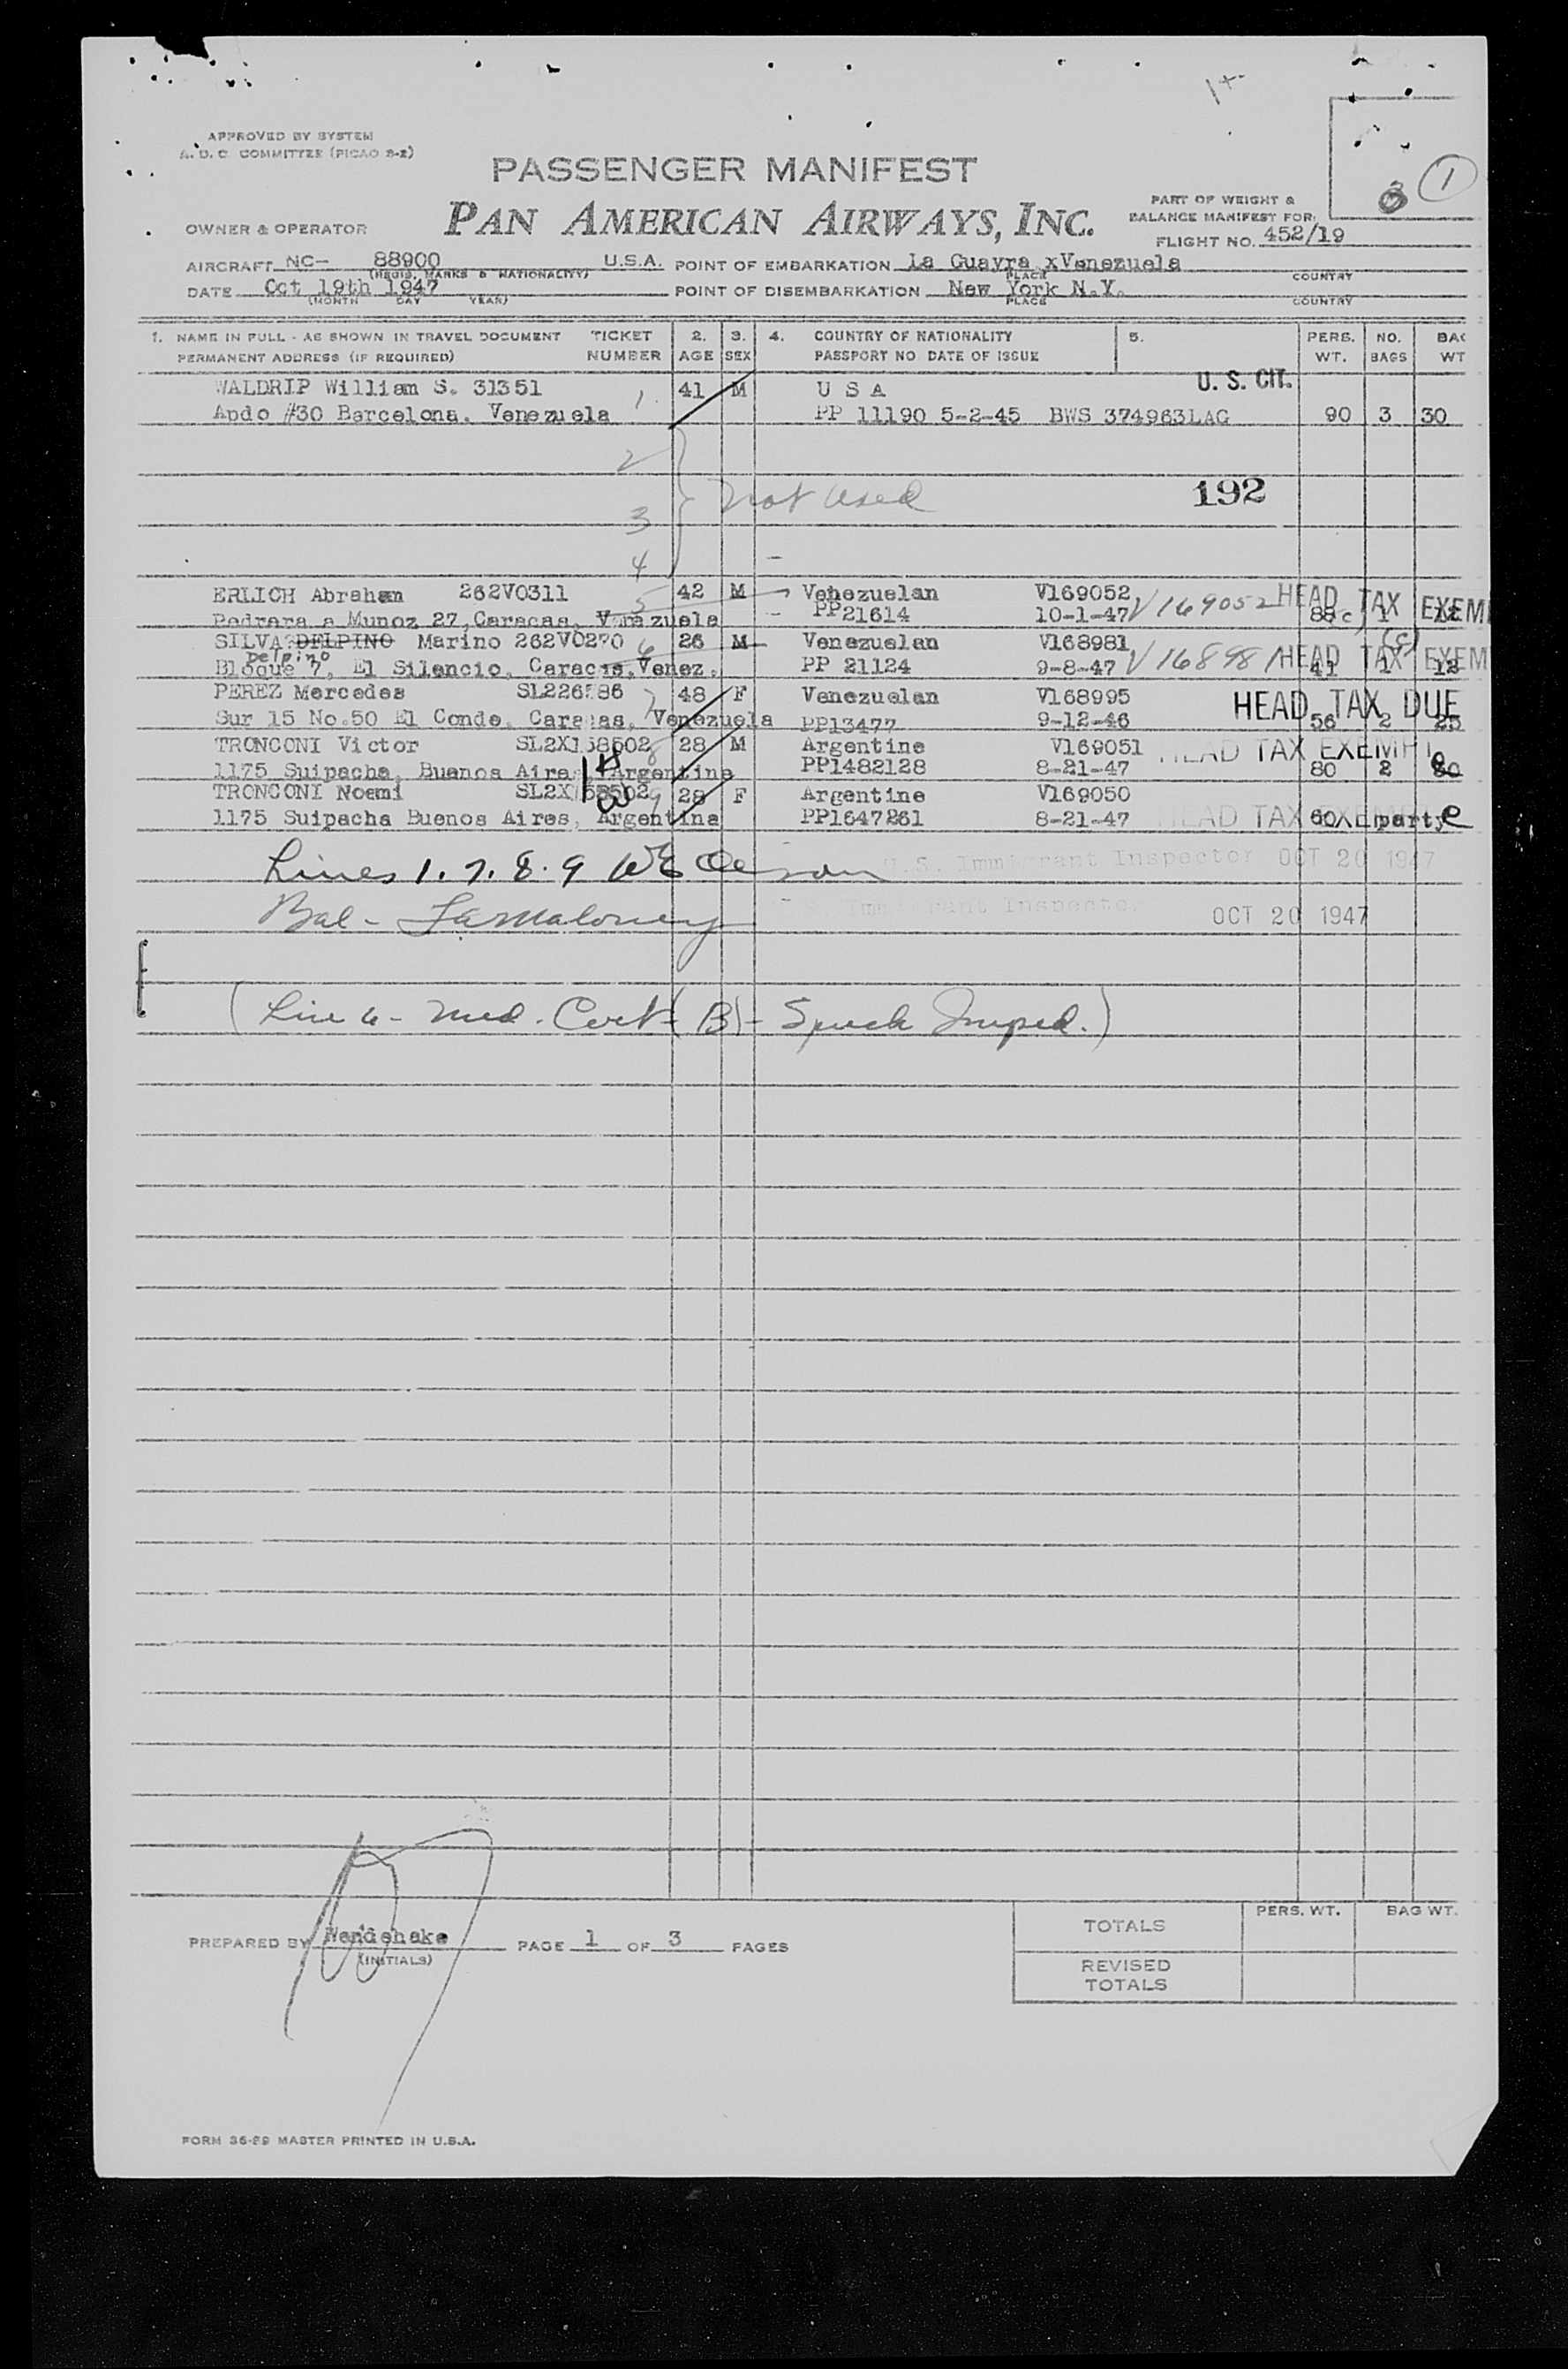 1+
APPROVED BY SYSTEM
A. O. C. COMMITTEE (PICAO S-2)
PASSENGER MANIFEST
PAN AMERICAN AIRWAYS, INC.
OWNER & OPERATOR
PART OF WEIGHT &
BALANCE MANIFEST FOR:
FLIGHT NO. 452/19
1
AIRCRAFT NC- 88900 U.S.A. POINT OF EMBARKATION La Guayra xVenezuela
(REGIS. MARKS & NATIONALITY) PLACE COUNTRY
DATE Oct 19th 1947 POINT OF DISEMBARKATION New York N.Y.
(MONTH DAY YEAR) PLACE COUNTRY
1. NAME IN FULL - AS SHOWN IN TRAVEL DOCUMENT TICKET 2. 3. 4. COUNTRY OF NATIONALITY 5. PERS. NO. BAG
PERMANENT ADDRESS (IF REQUIRED) NUMBER AGE SEX PASSPORT NO DATE OF ISSUE WT. BAGS WT
WALDRIP William S. 31351 1 41 M U S A U. S. CIT.
Apdo #30 Barcelona. Venezuela PP 11190 5-2-45 BWS 374963LAG 90 3 30
2
Not Used 192
3
4
ERLICH Abraham 262V0311 5 42 M Venezuelan V169052 V169052 HEAD TAX EXEM
Pedrera a Munoz 27 Caracas, Venezuela PP21614 10-1-47 88 1
SILVA DELPINO Marino 262V0270 6 26 M Venezuelan V168981 V168981 HEAD TAX EXEM
Delpino
Bloque 7, El Silencio, Caracas, Venez. PP 21124 9-8-47 41 1 12
PEREZ Mercedes SL226586 7 48 F Venezuelan V168995 HEAD TAX DUE
Sur 15 No.50 El Conde. Caracas, Venezuela PP13477 9-12-46 56 2 25
TRONCONI Victor SL2X158502 8 28 M Argentine V169051 HEAD TAX EXEMPT
1175 Suipacha, Buenos Aires, Argentina PP1482128 8-21-47 80 2 80
TRONCONI Noemi SL2X158502 9 28 F Argentine V169050
1175 Suipacha Buenos Aires, Argentina PP1647261 8-21-47 HEAD TAX EXEMPT 60 party
Lines 1. 7. 8. 9 U.S. Immigrant Inspector OCT 20 1947
Bal - Maloney Immigrant Inspector OCT 20 1947
(Line 6 - Med. Cert (B) - Speech Imped.)
PREPARED BY Wendehake PAGE 1 OF 3 PAGES
(INITIALS)
TOTALS PERS. WT. BAG WT.
REVISED
TOTALS
FORM 36-29 MASTER PRINTED IN U.S.A.